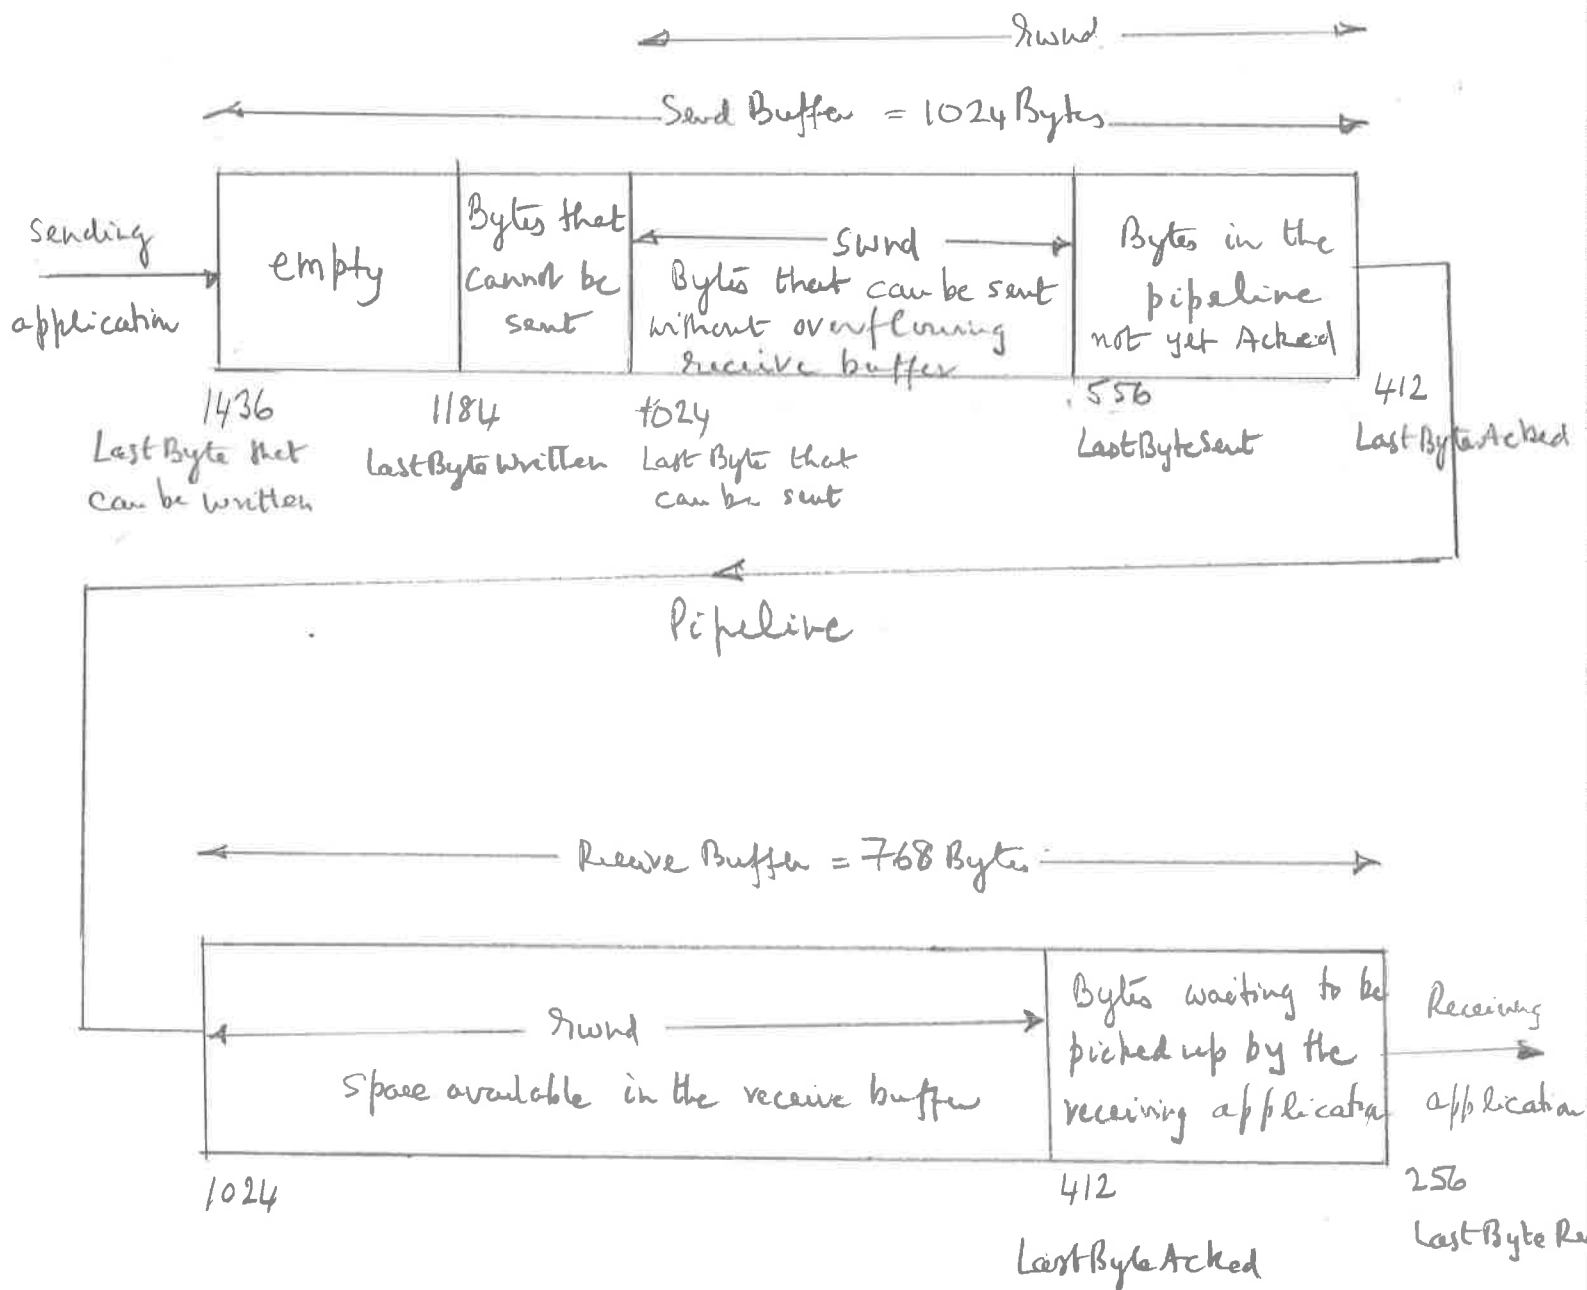 rwnd
Send Buffer = 1024 Bytes
sending
application
empty
Bytes that
cannot be
sent
swnd
Bytes that can be sent
without overflowing
receive buffer
Bytes in the
pipeline
not yet Acked
1436
LastByte that
can be written
1184
LastByteWritten
1024
Last Byte that
can be sent
556
LastByteSent
412
LastByteAcked
Pipeline
Receive Buffer = 768 Bytes
rwnd
Space available in the receive buffer
Bytes waiting to be
picked up by the
receiving applicatio
Receiving
application
1024
412
LastByteAcked
256
LastByteRe